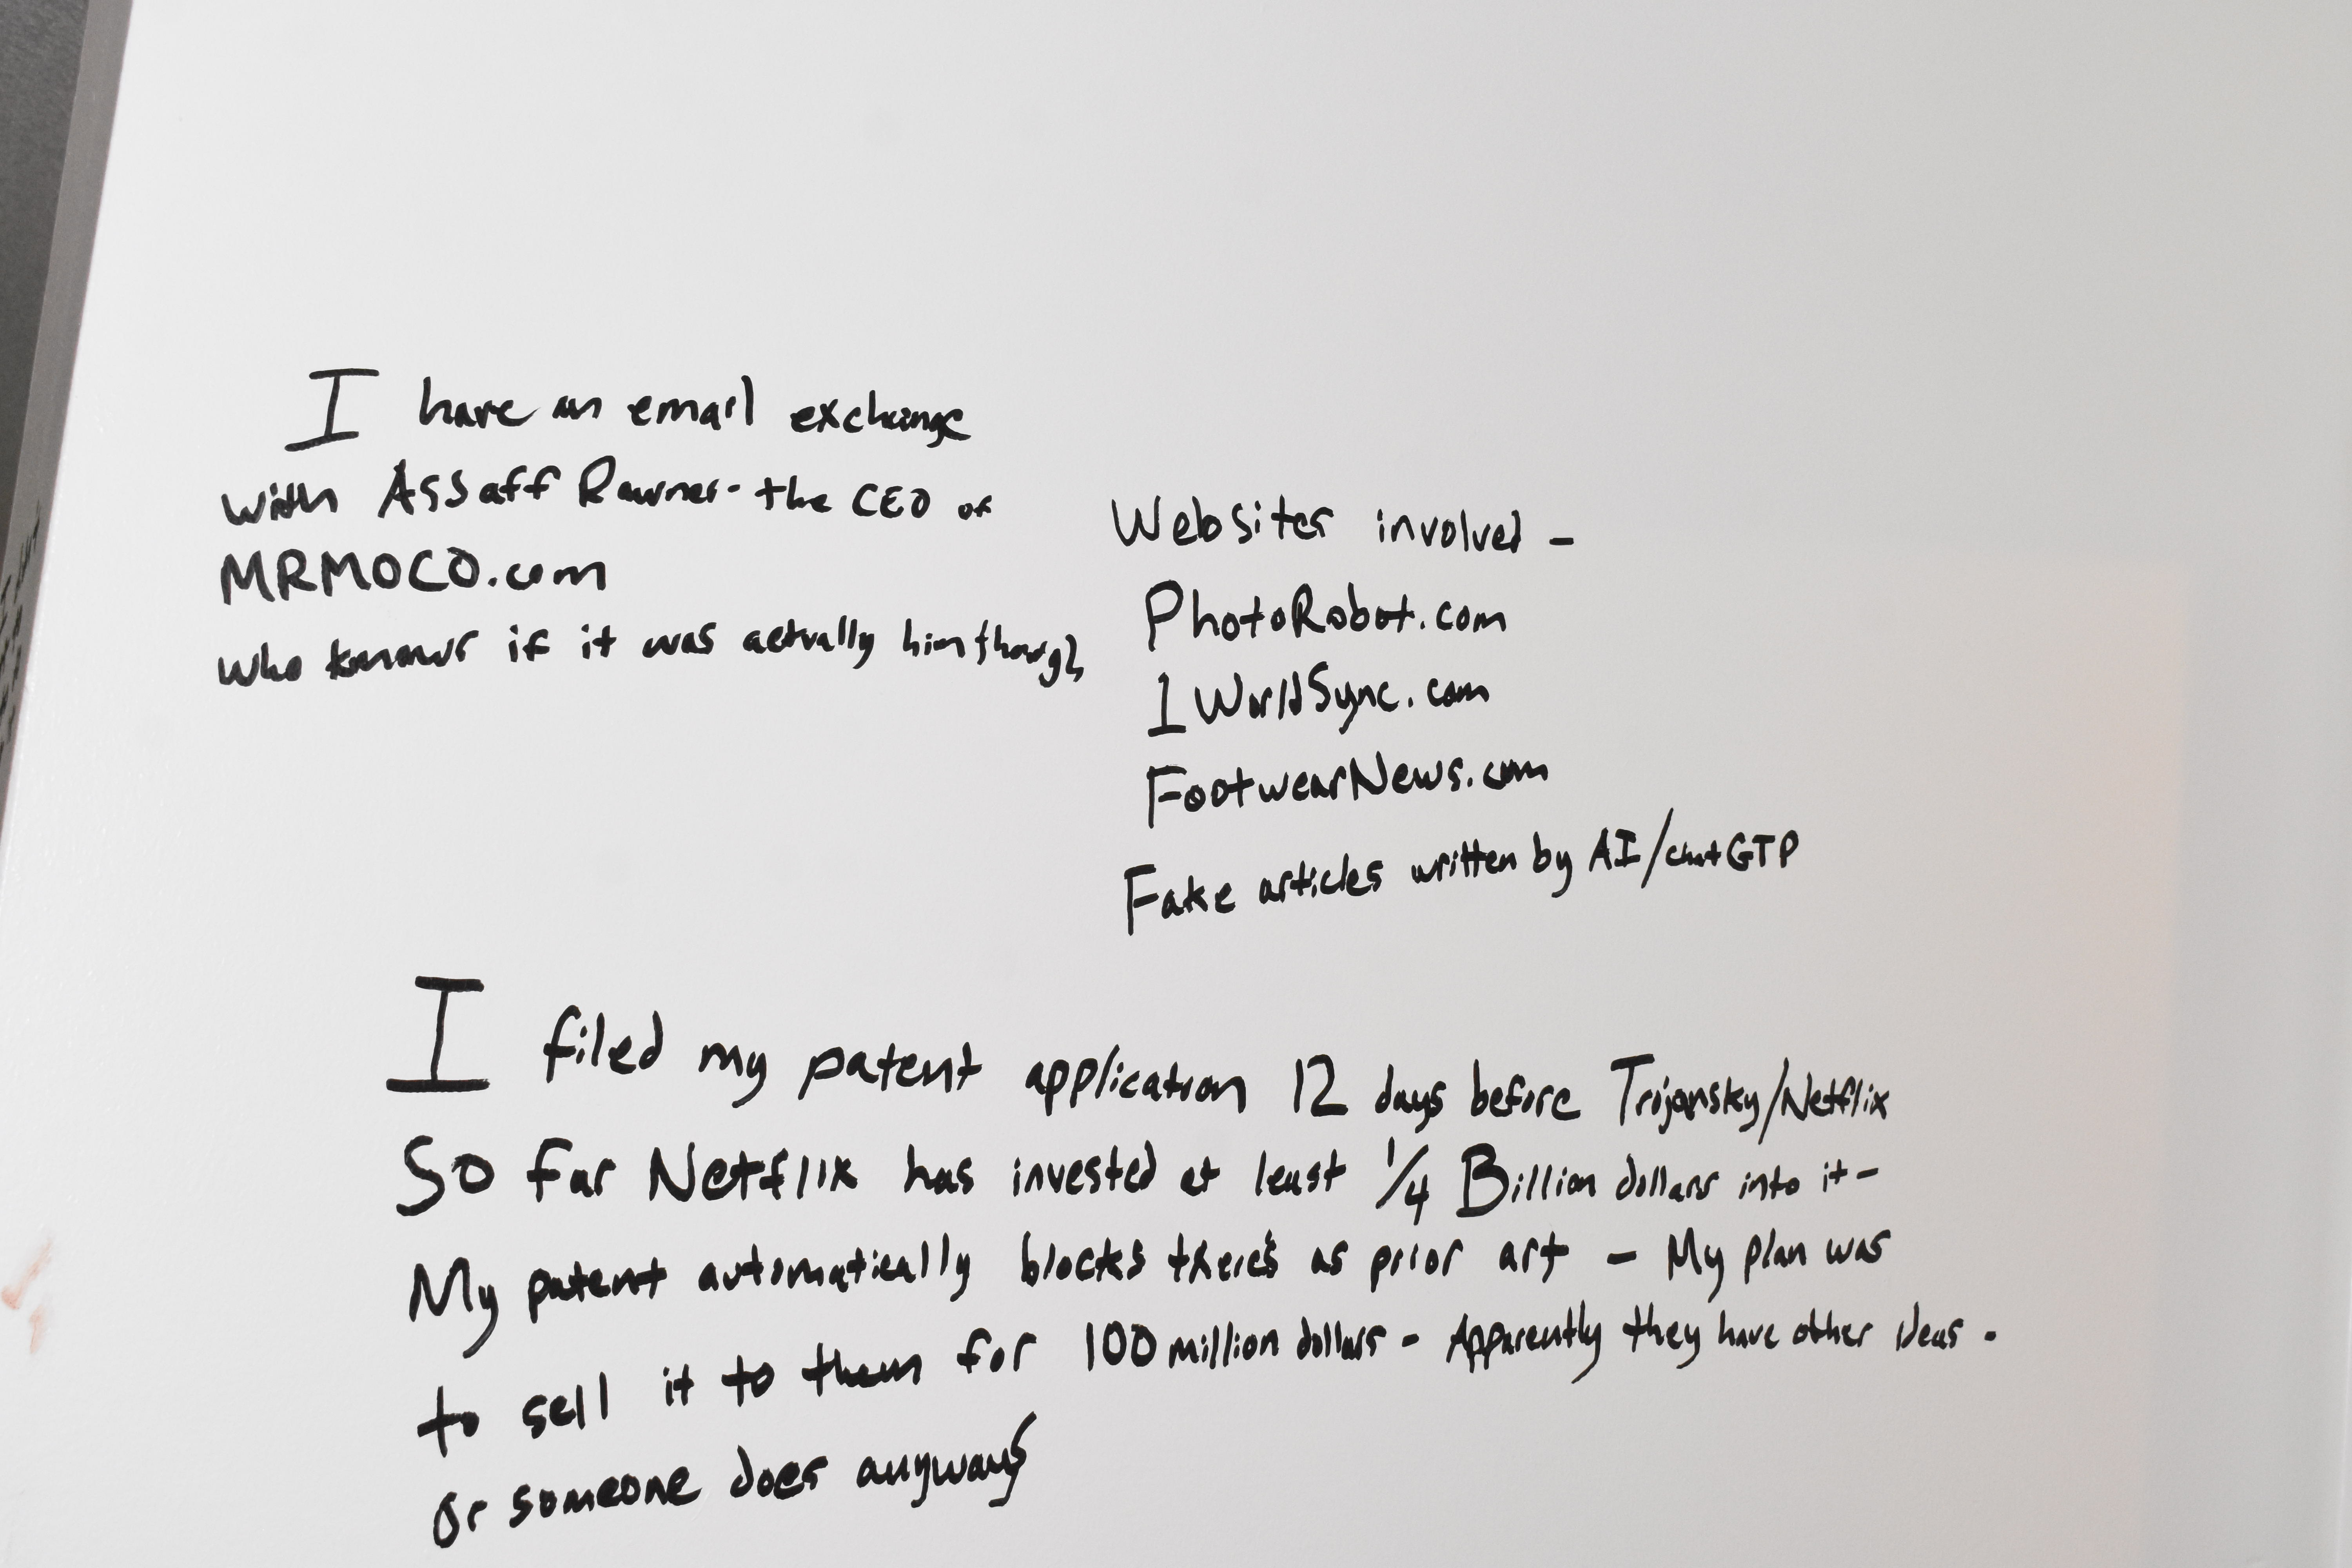 I have an email exchange
with Assaff Rawner - the CEO of
MRMOCO.com
who knows if it was actually him though
Websites involved -
PhotoRobot.com
1 WorldSync.com
FootwearNews.com
Fake articles written by AI/chatGTP
I filed my patent application 12 days before Trojansky/Netflix
So far Netflix has invested at least 1/4 Billion dollars into it -
My patent automatically blocks there's as prior art - My plan was
to sell it to them for 100 million dollars - Apparently they have other ideas -
or someone does anyways